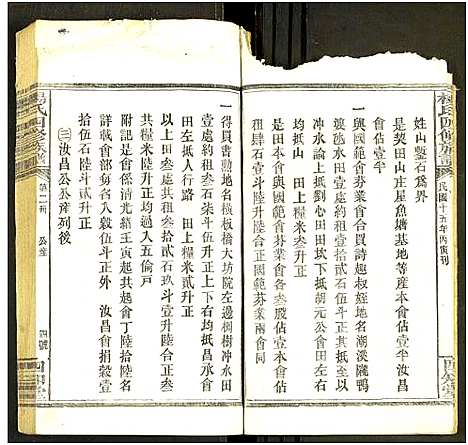 楊氏四修族譜
民國十五年丙寅刊
姓山鑿石為界
是契田山庄屋魚塘基地等產本會佔一半汝昌
會佔壹半
一與國範會芬業會合買詩趣叔姪地名湖漾隴鴨
冲水論上以四剬田坎心下抵朝元公會田左右
均抵山 田上糧米叁升正
是田本會與國範會芬業會各叁股佔壹本會約
租肆石壹斗陸升陸合正國範芬業兩會同
一得買書瀚地名横板橋大坊院左邊桐樹冲水田
壹處約租叁石柒斗伍升正上下右均抵昌汝會
田左抵人行路 田上糧米貳升正
以上田叁處共租叁拾貳石玖斗壹升陸合正叁
共糧米陸升正均過入五倫戶
附記是會係清光緒壬寅戎起會丁陸拾陸名
詳載會部毎名八穀伍斗正外 汝昌會捐穀壹
拾伍石陸斗貳升正
㊂汝昌公公產列後
楊氏四修族譜
第一冊
公產
四號
四知堂